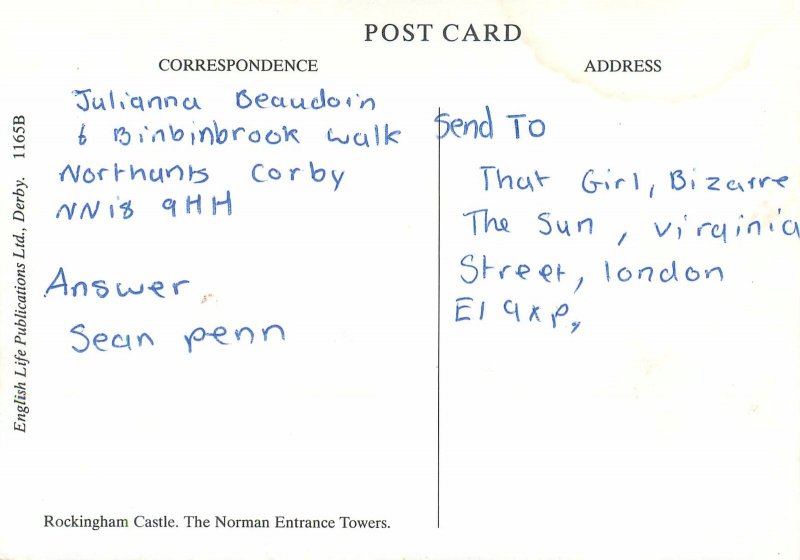 POST CARD
CORRESPONDENCE
ADDRESS
Julianna Beaudoin
6 Binbinbrook walk
Northants Corby
NN18 9HH
Answer
Sean penn
Send To
That Girl, Bizarre
The Sun, virginia
Street, london
E1 9xp,
English Life Publications Ltd., Derby. 1165B
Rockingham Castle. The Norman Entrance Towers.